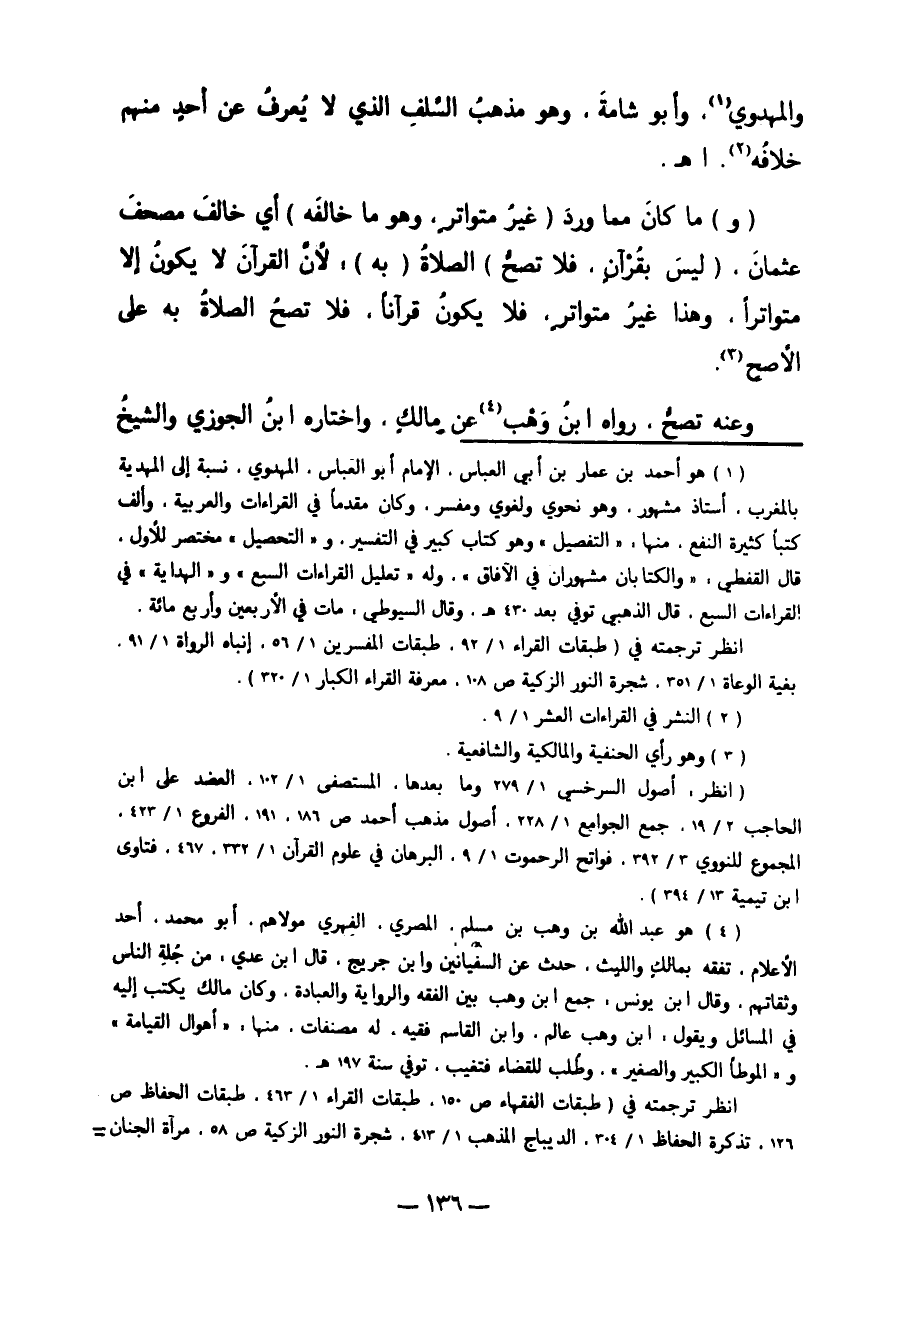 والمهدوي(١)، وأبو شامةَ، وهو مذهبُ السَّلفِ الذي لا يُعرفُ عن أحدٍ منهم
خلافُه(٢). اهـ.
(و) ما كانَ مما وردَ (غيرُ متواترٍ، وهو ما خالفَه) أي خالفَ مصحفَ
عثمانَ، (ليسَ بقُرْآنٍ، فلا تصحُّ) الصلاةُ (به)؛ لأنَّ القرآنَ لا يكونُ إلا
متواتراً، وهذا غيرُ متواترٍ، فلا يكونُ قرآناً، فلا تصحُ الصلاةُ به على
الأصح(٣).
وعنه تصحُّ، رواه ابنُ وَهْب(٤) عن مالكٍ، واختاره ابنُ الجوزي والشيخُ
(١) هو أحمد بن عمار بن أبي العباس، الإمام أبو العباس، المهدوي، نسبة إلى المهدية
بالمغرب، أستاذ مشهور، وهو نحوي ولغوي ومفسر، وكان مقدماً في القراءات والعربية، وألف
كتباً كثيرة النفع، منها: «التفصيل» وهو كتاب كبير في التفسير، و «التحصيل» مختصر للأول،
قال القفطي: «والكتابان مشهوران في الآفاق»، وله «تعليل القراءات السبع» و «الهداية» في
القراءات السبع، قال الذهبي توفي بعد ٤٣٠ هـ، وقال السيوطي: مات في الأربعين وأربع مائة.
انظر ترجمته في (طبقات القراء ١/ ٩٢، طبقات المفسرين ١/ ٥٦، إنباه الرواة ١/ ٩١،
بغية الوعاة ١/ ٣٥١، شجرة النور الزكية ص ١٠٨، معرفة القراء الكبار ١/ ٣٢٠).
(٢) النشر في القراءات العشر ١/ ٩.
(٣) وهو رأي الحنفية والمالكية والشافعية.
(انظر: أصول السرخسي ١/ ٢٧٩ وما بعدها، المستصفى ١/ ١٠٢، العضد على ابن
الحاجب ٢/ ١٩، جمع الجوامع ١/ ٢٢٨، أصول مذهب أحمد ص ١٨٦، ١٩١، الفروع ١/ ٤٢٣،
المجموع للنووي ٣/ ٣٩٢، فواتح الرحموت ١/ ٩، البرهان في علوم القرآن ١/ ٣٣٢، ٤٦٧، فتاوى
ابن تيمية ١٣/ ٣٩٤).
(٤) هو عبد الله بن وهب بن مسلم، المصري، الفهري مولاهم، أبو محمد، أحد
الأعلام، تفقه بمالكٍ والليث، حدث عن السفيانين وابن جريج، قال ابن عدي: من جُلةِ الناس
وثقاتهم، وقال ابن يونس: جمع ابن وهب بين الفقه والرواية والعبادة، وكان مالك يكتب إليه
في المسائل ويقول: ابن وهب عالم، وابن القاسم فقيه، له مصنفات، منها: «أهوال القيامة»
و «الموطأ الكبير والصغير»، وطُلب للقضاء فتغيب، توفي سنة ١٩٧ هـ.
انظر ترجمته في (طبقات الفقهاء ص ١٥٠، طبقات القراء ١/ ٤٦٣، طبقات الحفاظ ص
١٢٦، تذكرة الحفاظ ١/ ٣٠٤، الديباج المذهب ١/ ٤١٣، شجرة النور الزكية ص ٥٨، مرآة الجنان =
— ١٣٦ —